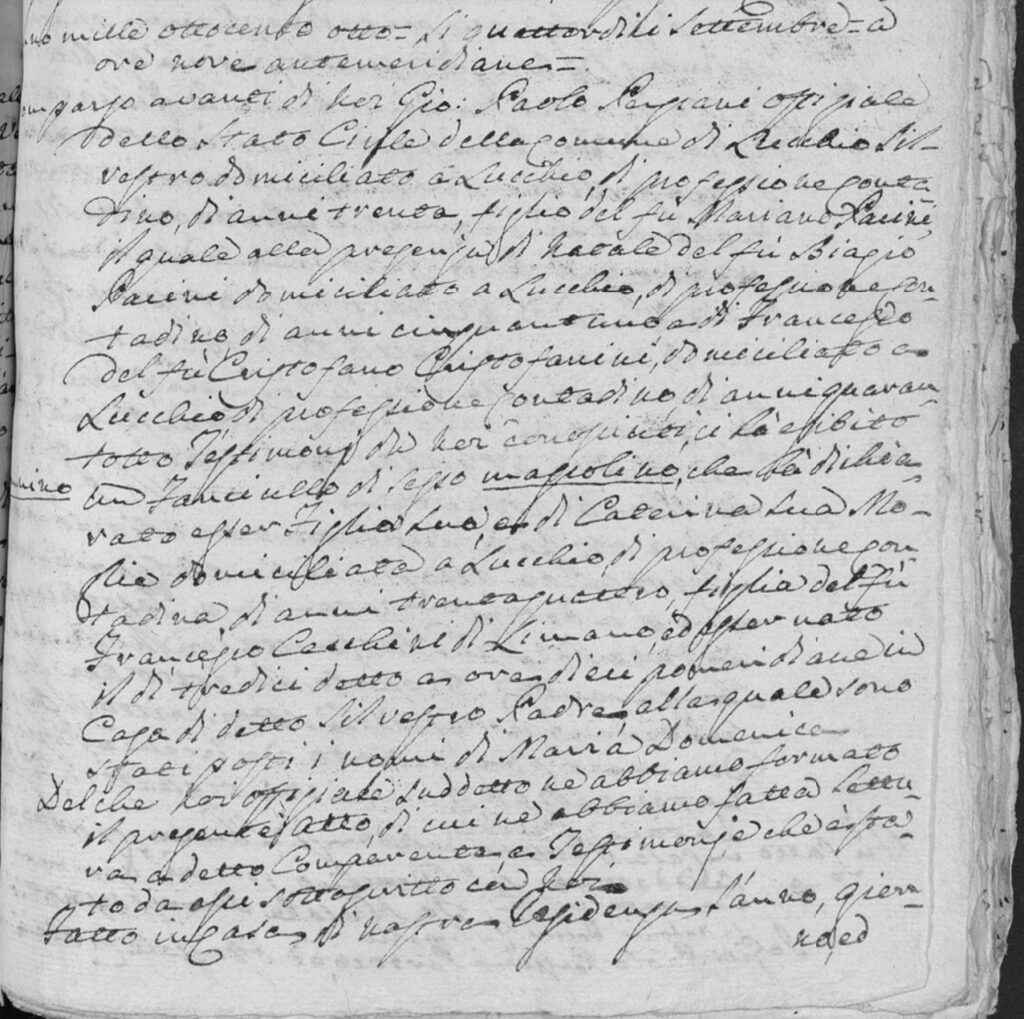 mille ottocento otto = li quattordici Settembre = a
ore nove antemeridiane =
comparso avanti di noi Gio: Paolo offiziale
dello Stato Civile della Comune di Lucchio Sil-
vestro domiciliato a Lucchio, di professione conta
dino, di anni trenta, figlio del fù Mariano Pacini
il quale alla presenza di Natale del fù Biagio
Pacini domiciliato a Lucchio, di professione con-
tadino di anni cinquantuno e di Francesco
del fù Cristofano Cristofanini, domiciliato a
Lucchio di professione contadino, di anni quaran-
totto Testimonj da noi ci hà esibito
un Fanciullo di sesso mascolino, che hà dichia-
rato esser Figlia sua, e di Caterina sua Mo-
glie domiciliata a Lucchio, di professione con-
tadina di anni trentaquattro, figlia del fù
Francesco Cecchini di Limano, ed esser nato
il dì tredici detto a ore dieci pomeridiane in
Casa di detto Silvestro Padre, alla quale sono
stati posti i nomi di Maria Domenica
Del che noi offiziale suddetto ne abbiamo formato
il presente atto, di cui ne abbiamo fatta lettu-
ra a detto Comparente e Testimonj e che è sta-
to da essi sottoscritto con noi
Fatto in Casa di nostra Residenza l'anno, gior-
no, ed